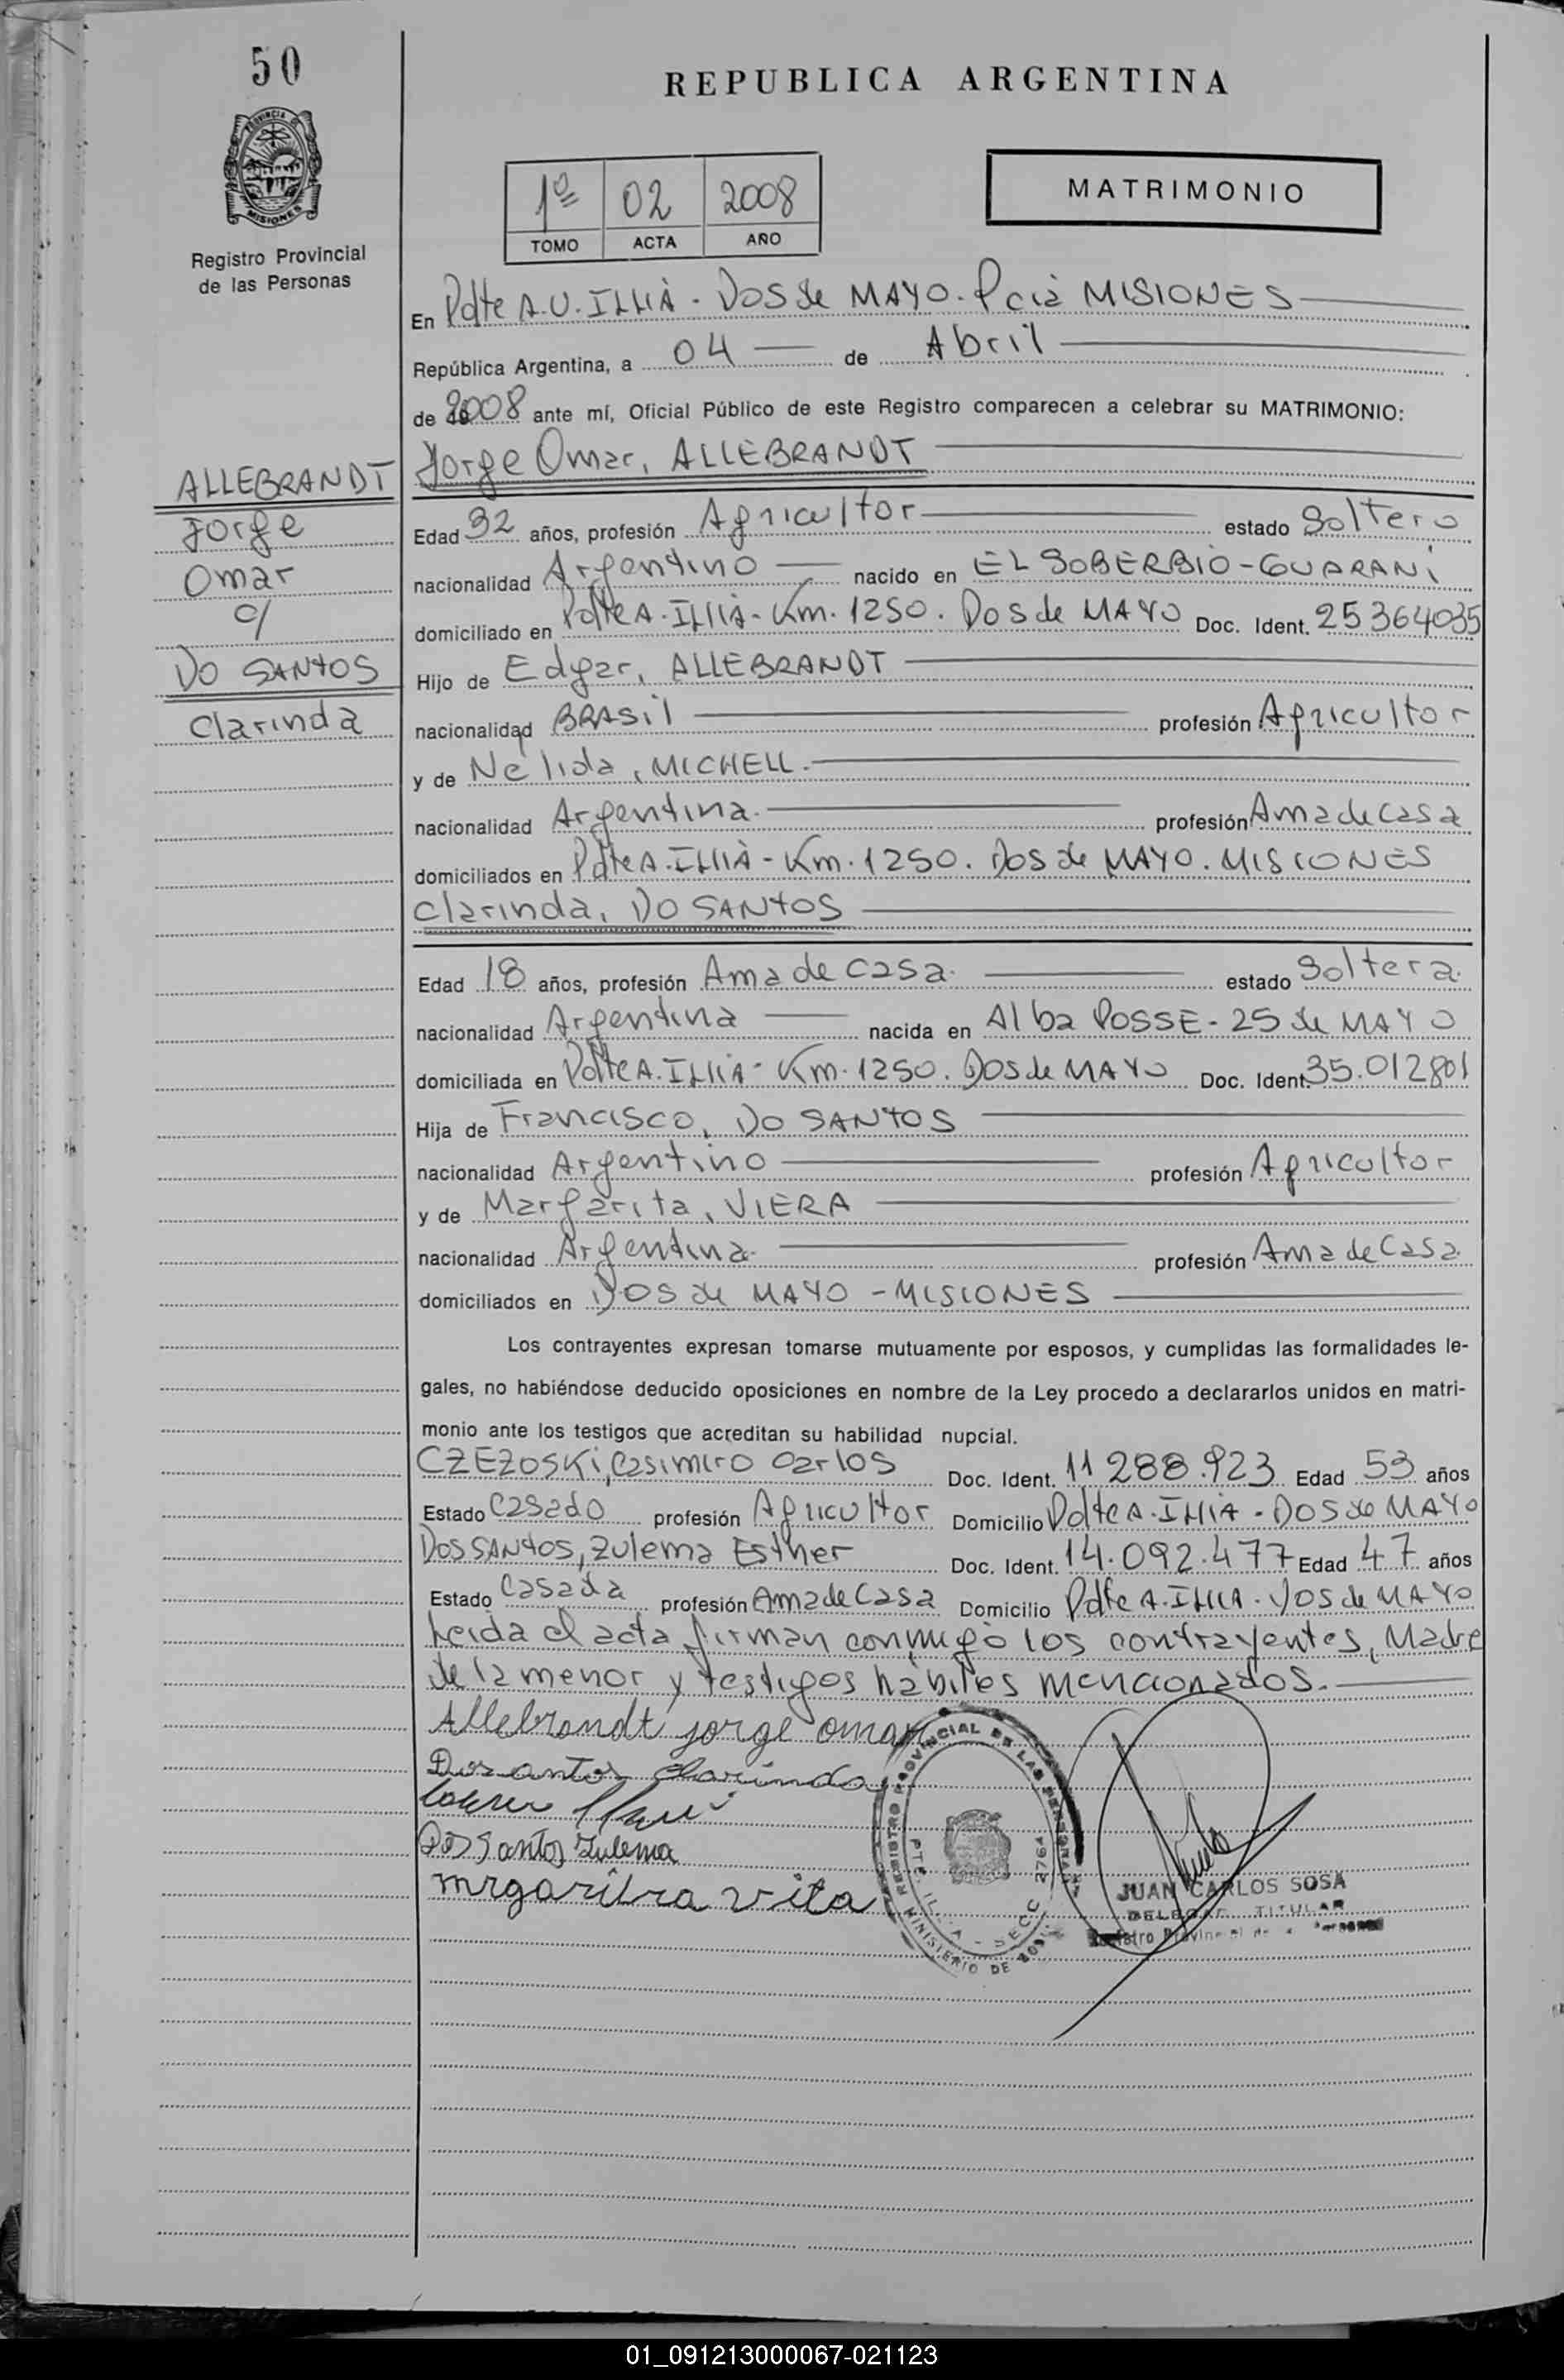 50
REPUBLICA ARGENTINA
PROVINCIA DE
MISIONES
Registro Provincial
de las Personas
1º 02 2008
TOMO ACTA AÑO
MATRIMONIO
En Pdte A.U. ILLIA - DOS de MAYO. Pcia MISIONES
República Argentina, a 04 de Abril
de 2008 ante mí, Oficial Público de este Registro comparecen a celebrar su MATRIMONIO:
Jorge Omar, ALLEBRANDT
ALLEBRANDT
Jorge
Omar
c/
DO SANTOS
Clarinda
Edad 32 años, profesión Agricultor estado Soltero
nacionalidad Argentino nacido en EL SOBERBIO - GUARANI
domiciliado en Pdte A. Illia - Km. 1250. Dos de MAYO Doc. Ident. 25364035
Hijo de Edgar, ALLEBRANDT
nacionalidad BRASil profesión Agricultor
y de Nelida, MICHELL.
nacionalidad Argentina. profesión Ama de Casa
domiciliados en Pdte A. Illia - Km. 1250. Dos de MAYO. MISIONES
Clarinda, DO SANTOS
Edad 18 años, profesión Ama de casa. estado Soltera.
nacionalidad Argentina nacida en Alba POSSE - 25 de MAYO
domiciliada en Pdte A. Illia - Km. 1250. Dos de MAYO Doc. Ident. 35.012801
Hija de Francisco, DO SANTOS
nacionalidad Argentino profesión Agricultor
y de Margarita, VIERA
nacionalidad Argentina. profesión Ama de Casa.
domiciliados en DOS de MAYO - MISIONES
Los contrayentes expresan tomarse mutuamente por esposos, y cumplidas las formalidades le-
gales, no habiéndose deducido oposiciones en nombre de la Ley procedo a declararlos unidos en matri-
monio ante los testigos que acreditan su habilidad nupcial.
CZEZOSKi, Casimiro Carlos Doc. Ident. 11 288.923 Edad 53 años
Estado Casado profesión Agricultor Domicilio Pdte A. Illia - DOS de MAYO
DOS SANTOS, Zulema Esther Doc. Ident. 14.092.477 Edad 47 años
Estado Casada profesión Ama de Casa Domicilio Pdte A. Illia - Dos de MAYO
Leida el acta firman conmigo los contrayentes, Madre
de la menor y testigos habiles mencionados.
Allebrandt jorge omar
Dos antos clarinda
Dos Santos Zulema
mrgaritra vita
REGISTRO PROVINCIAL DE LAS PERSONAS
MINISTERIO DE
JUAN CARLOS SOSA
DELEGADO TITULAR
Registro Provincial de las Personas
01_091213000067-021123